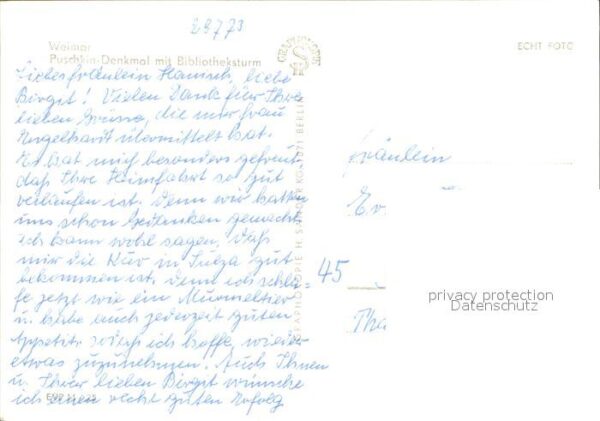 29773
Weimar
Puschkin-Denkmal mit Bibliotheksturm
ECHT FOTO
Liebes Fräulein Hanisch, liebe
Birgit! Vielen Dank für Ihre
lieben Grüsse, die mir Frau
übermittelt hat.
Es hat mich besonders gefreut
daß Ihre Heimfahrt so gut
verlaufen ist. Denn wir hatten
uns schon Gedanken gemacht.
Ich kann wohl sagen, daß
mir die Kur in Sulza gut
bekommen ist, denn ich schla-
fe jetzt wie ein Murmeltier
u. habe auch jederzeit guten
Appetit, sodaß ich hoffe, wieder
etwas zuzunehmen. Auch Ihnen
u. Ihrer lieben Birgit wünsche
ich einen recht guten Erfolg
GRAPHOKOPIE H. SANDER KG 1071 BERLIN
Fräulein
Ev
45
Tha
privacy protection
Datenschutz